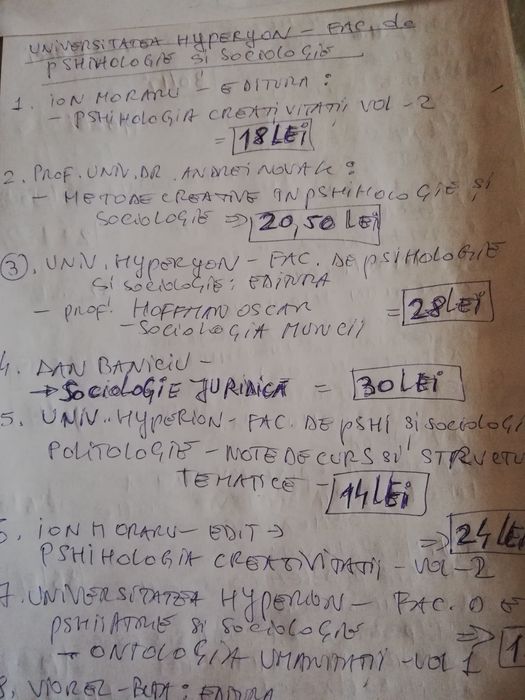 UNIVERSITATEA HYPERYON - FAC. de
PSHIHOLOGIE SI SOCIOLOGIE
1. ION MORARU - EDITURA:
- PSHIHOLOGIA CREATIVITATII VOL - 2
= 18 LEI
2. PROF. UNIV. DR. ANDREI NOVAK:
- METODE CREATIVE IN PSHIHOLOGIE SI
SOCIOLOGIE => 20,50 LEI
3. UNIV. HYPERYON - FAC. DE PSIHOLOGIE
SI SOCIOLOGIE: EDITURA
- PROF. HOFFMAN OSCAR = 28 LEI
- SOCIOLOGIA MUNCII
4. DAN BANICIU -
→ SOCIOLOGIE JURIDICA = 30 LEI
5. UNIV. HYPERION - FAC. DE PSHI SI SOCIOLOGI
POLITOLOGIE - NOTE DE CURS SI STRUCTU
TEMATICE - 14 LEI
6. ION MORARU - EDIT → => 24 LEI
PSHIHOLOGIA CREATIVITATII - VOL - 2
7. UNIVERSITATEA HYPERION - FAC. D E
PSHIIATRIE SI SOCIOLOGIE => 1
- ONTOLOGIA UMANITATII - VOL 1
8. VIOREL - : EDITURA